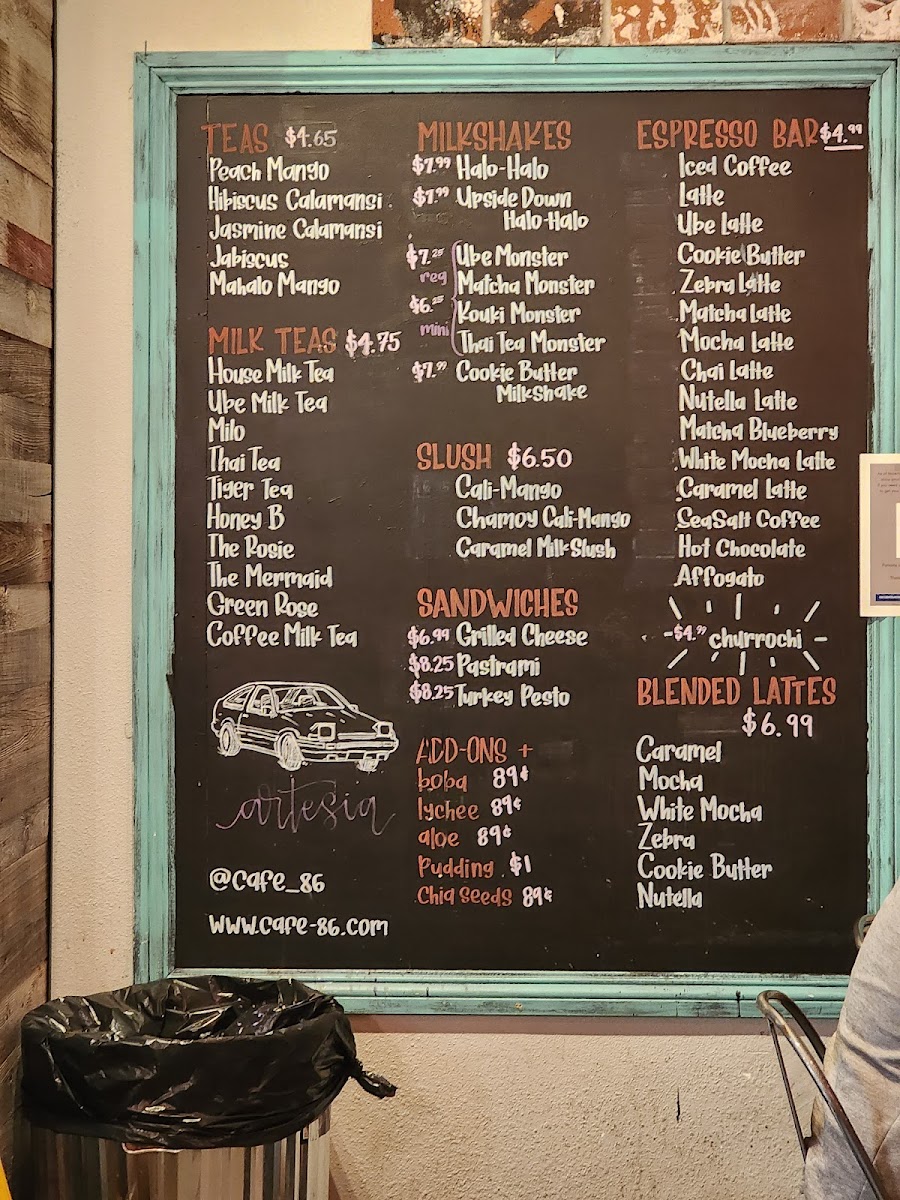 TEAS $4.65
Peach Mango
Hibiscus Calamansi
Jasmine Calamansi
Jabiscus
Mahalo Mango
MILK TEAS $4.75
House Milk Tea
Ube Milk Tea
Milo
Thai Tea
Tiger Tea
Honey B
The Rosie
The Mermaid
Green Rose
Coffee Milk Tea
artesia
@cafe_86
www.cafe-86.com
MILKSHAKES
$7.99 Halo-Halo
$7.99 Upside Down
Halo-Halo
$7.25 Ube Monster
reg Matcha Monster
$6.25 Kouki Monster
mini Thai Tea Monster
$7.99 Cookie Butter
Milkshake
SLUSH $6.50
Cali-Mango
Chamoy Cali-Mango
Caramel Milk Slush
SANDWICHES
$6.99 Grilled Cheese
$8.25 Pastrami
$8.25 Turkey Pesto
ADD-ONS +
boba 89¢
lychee 89¢
aloe 89¢
Pudding $1
Chia Seeds 89¢
ESPRESSO BAR $4.99
Iced Coffee
Latte
Ube Latte
Cookie Butter
Zebra Latte
Matcha Latte
Mocha Latte
Chai Latte
Nutella Latte
Matcha Blueberry
White Mocha Latte
Caramel Latte
SeaSalt Coffee
Hot Chocolate
Affogato
$4.99 churrochi
BLENDED LATTES
$6.99
Caramel
Mocha
White Mocha
Zebra
Cookie Butter
Nutella